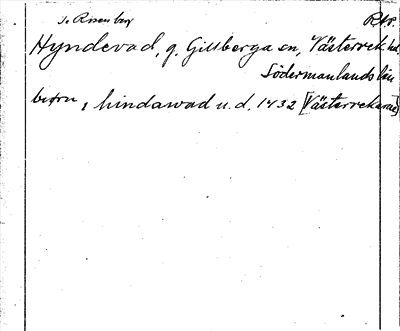 J. Rosenberg
Hyndevad, g. Gillberga sn, Västerrek hd.
Södermanlands län
hindawad u.d. 1432 [Västerrekarne]